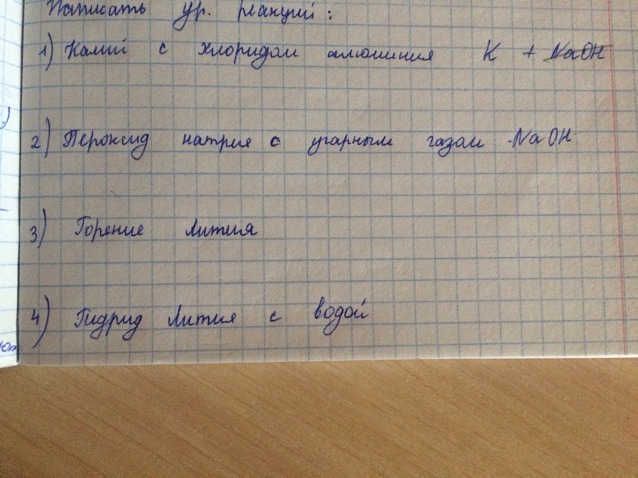 Написать ур. реакций:
1) Калий с хлоридом алюминия K + NaOH
2) Пероксид натрия с угарным газом NaOH
3) Горение лития
4) Гидрид лития с водой